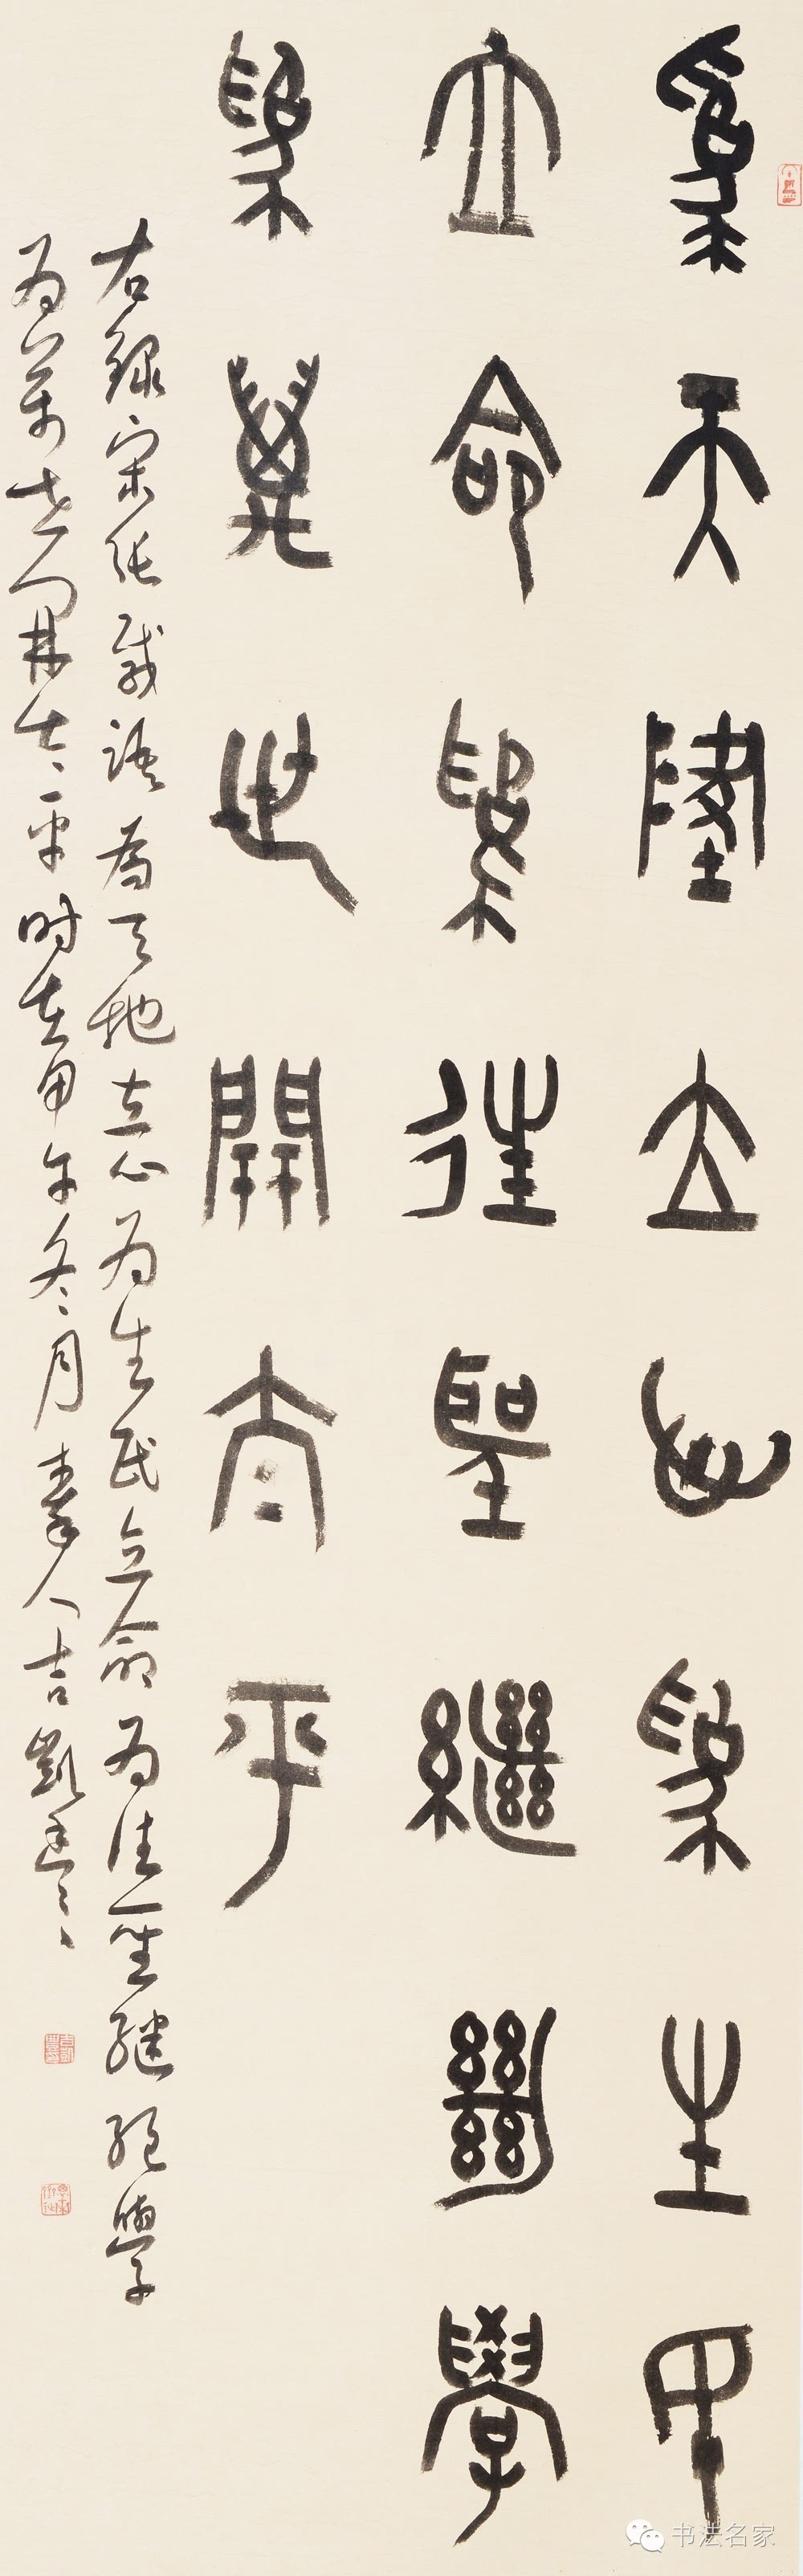 為天地立心為生民
立命為往聖繼絕學
為萬世開太平
右錄宋張載語為天地立心為生民立命為往聖繼絕學
為萬世開太平時在甲午冬月秦人吉凱
书法名家